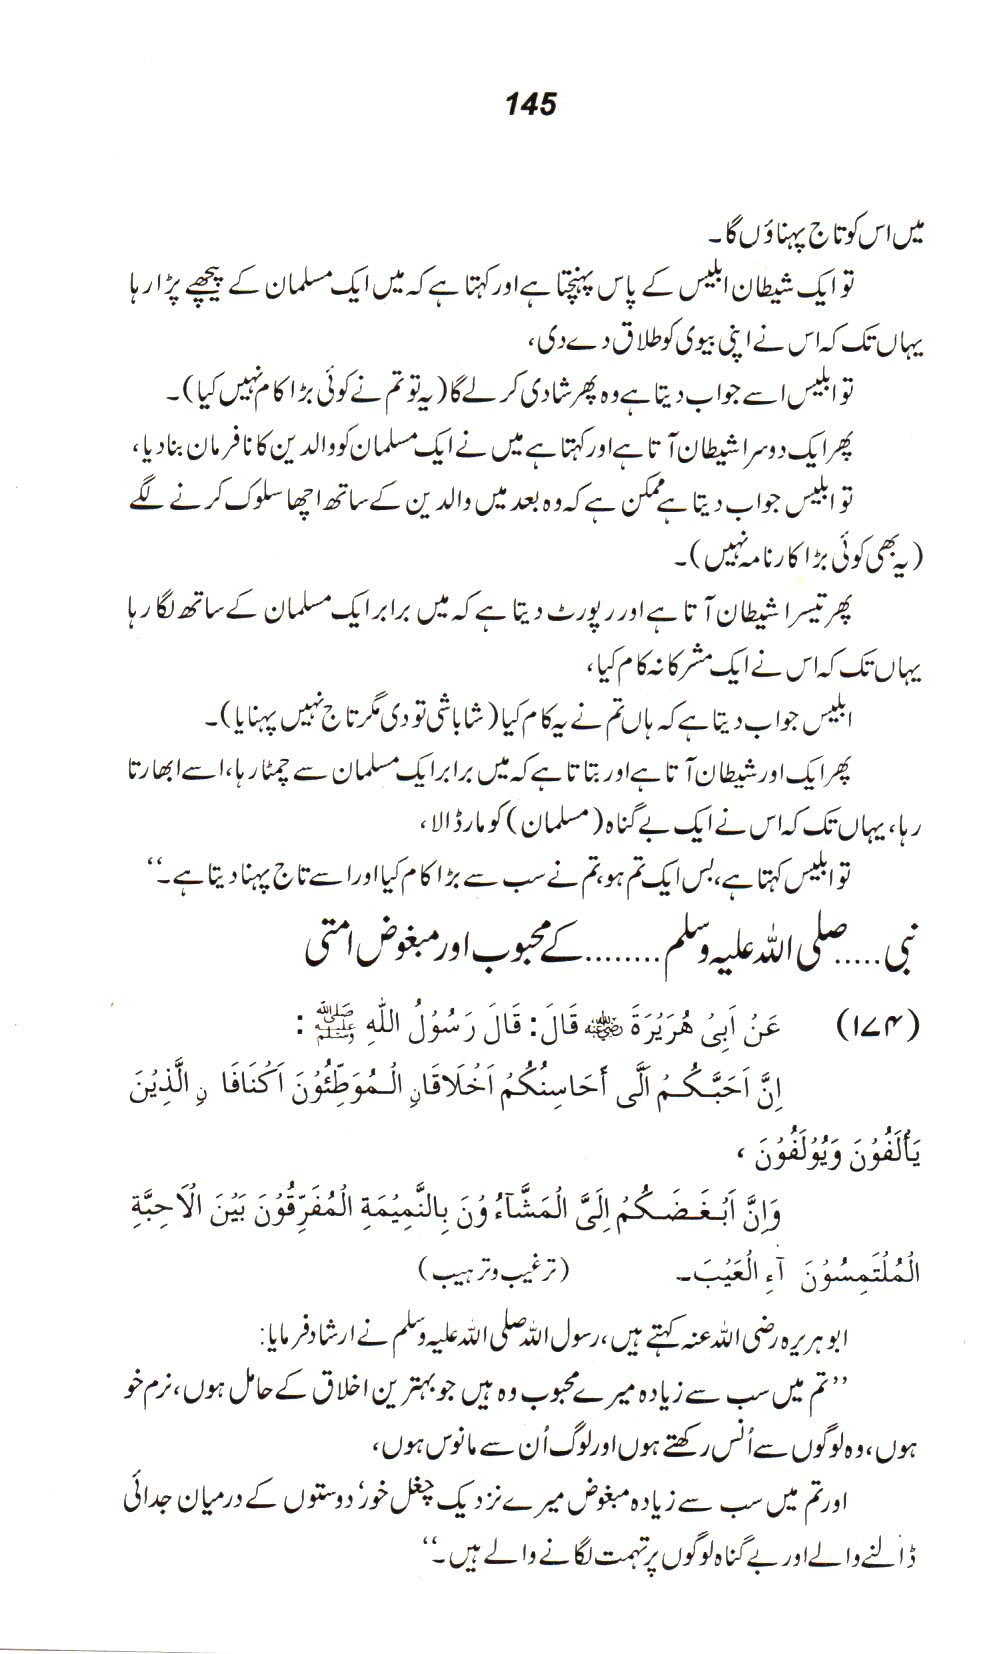 145
میں اس کو تاج پہناؤں گا۔
تو ایک شیطان ابلیس کے پاس پہنچتا ہے اور کہتا ہے کہ میں ایک مسلمان کے پیچھے پڑا رہا
یہاں تک کہ اس نے اپنی بیوی کو طلاق دے دی،
تو ابلیس اسے جواب دیتا ہے وہ پھر شادی کر لے گا (یہ تو تم نے کوئی بڑا کام نہیں کیا)۔
پھر ایک دوسرا شیطان آتا ہے اور کہتا ہے میں نے ایک مسلمان کو والدین کا نافرمان بنا دیا،
تو ابلیس جواب دیتا ہے ممکن ہے کہ وہ بعد میں والدین کے ساتھ اچھا سلوک کرنے لگے
(یہ بھی کوئی بڑا کارنامہ نہیں)۔
پھر تیسرا شیطان آتا ہے اور رپورٹ دیتا ہے کہ میں برابر ایک مسلمان کے ساتھ لگا رہا
یہاں تک کہ اس نے ایک مشرکانہ کام کیا،
ابلیس جواب دیتا ہے کہ ہاں تم نے یہ کام کیا (شاباشی تو دی مگر تاج نہیں پہنایا)۔
پھر ایک اور شیطان آتا ہے اور بتاتا ہے کہ میں برابر ایک مسلمان سے چمٹا رہا، اسے ابھارتا
رہا، یہاں تک کہ اس نے ایک بے گناہ (مسلمان) کو مار ڈالا،
تو ابلیس کہتا ہے، بس ایک تم ہو، تم نے سب سے بڑا کام کیا اور اسے تاج پہنا دیتا ہے۔‘‘
نبی.....صلی اللہ علیہ وسلم........کے محبوب اور مبغوض امتی
(۱۷۴) عَنْ اَبِیْ هُرَيْرَةَ رضی اللہ عنہ قَالَ: قَالَ رَسُوْلُ اللّٰهِ ﷺ :
اِنَّ اَحَبَّكُمْ اَلَّی أَحَاسِنُكُمْ اَخْلَاقَانِ الْمُوَطِّئُوْنَ اَكْنَافَا نِ الَّذِيْنَ
يَأْلَفُوْنَ وَيُوْلَفُوْنَ ،
وَاِنَّ اَبْغَضَكُمْ اِلَیَّ الْمَشَّآءُوْنَ بِالنَّمِيْمَةِ الْمُفَرِّقُوْنَ بَيْنَ الْاَحِبَّةِ
الْمُلْتَمِسُوْنَ آءِ الْعَيْبَ۔ (ترغیب و ترہیب)
ابوہریرہ رضی اللہ عنہ کہتے ہیں، رسول اللہ صلی اللہ علیہ وسلم نے ارشاد فرمایا:
’’تم میں سب سے زیادہ میرے محبوب وہ ہیں جو بہترین اخلاق کے حامل ہوں، نرم خو
ہوں، وہ لوگوں سے اُنس رکھتے ہوں اور لوگ اُن سے مانوس ہوں،
اور تم میں سب سے زیادہ مبغوض میرے نزدیک چغل خور، دوستوں کے درمیان جدائی
ڈالنے والے اور بے گناہ لوگوں پر تہمت لگانے والے ہیں۔‘‘